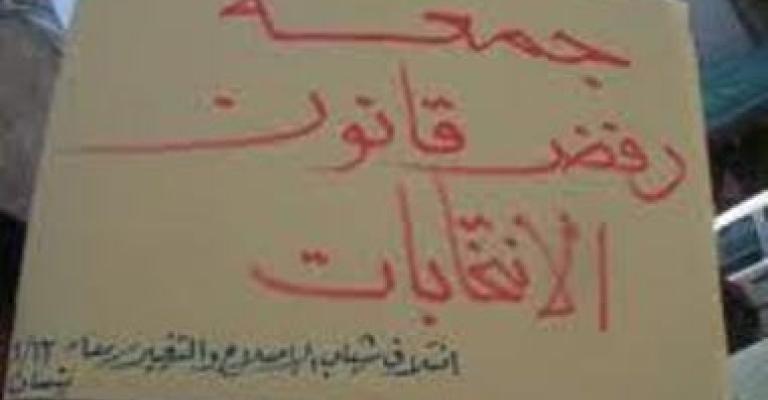 جمعة
رفض قانون
الانتخابات
ائتلاف شباب الإصلاح والتغيير
نيسان